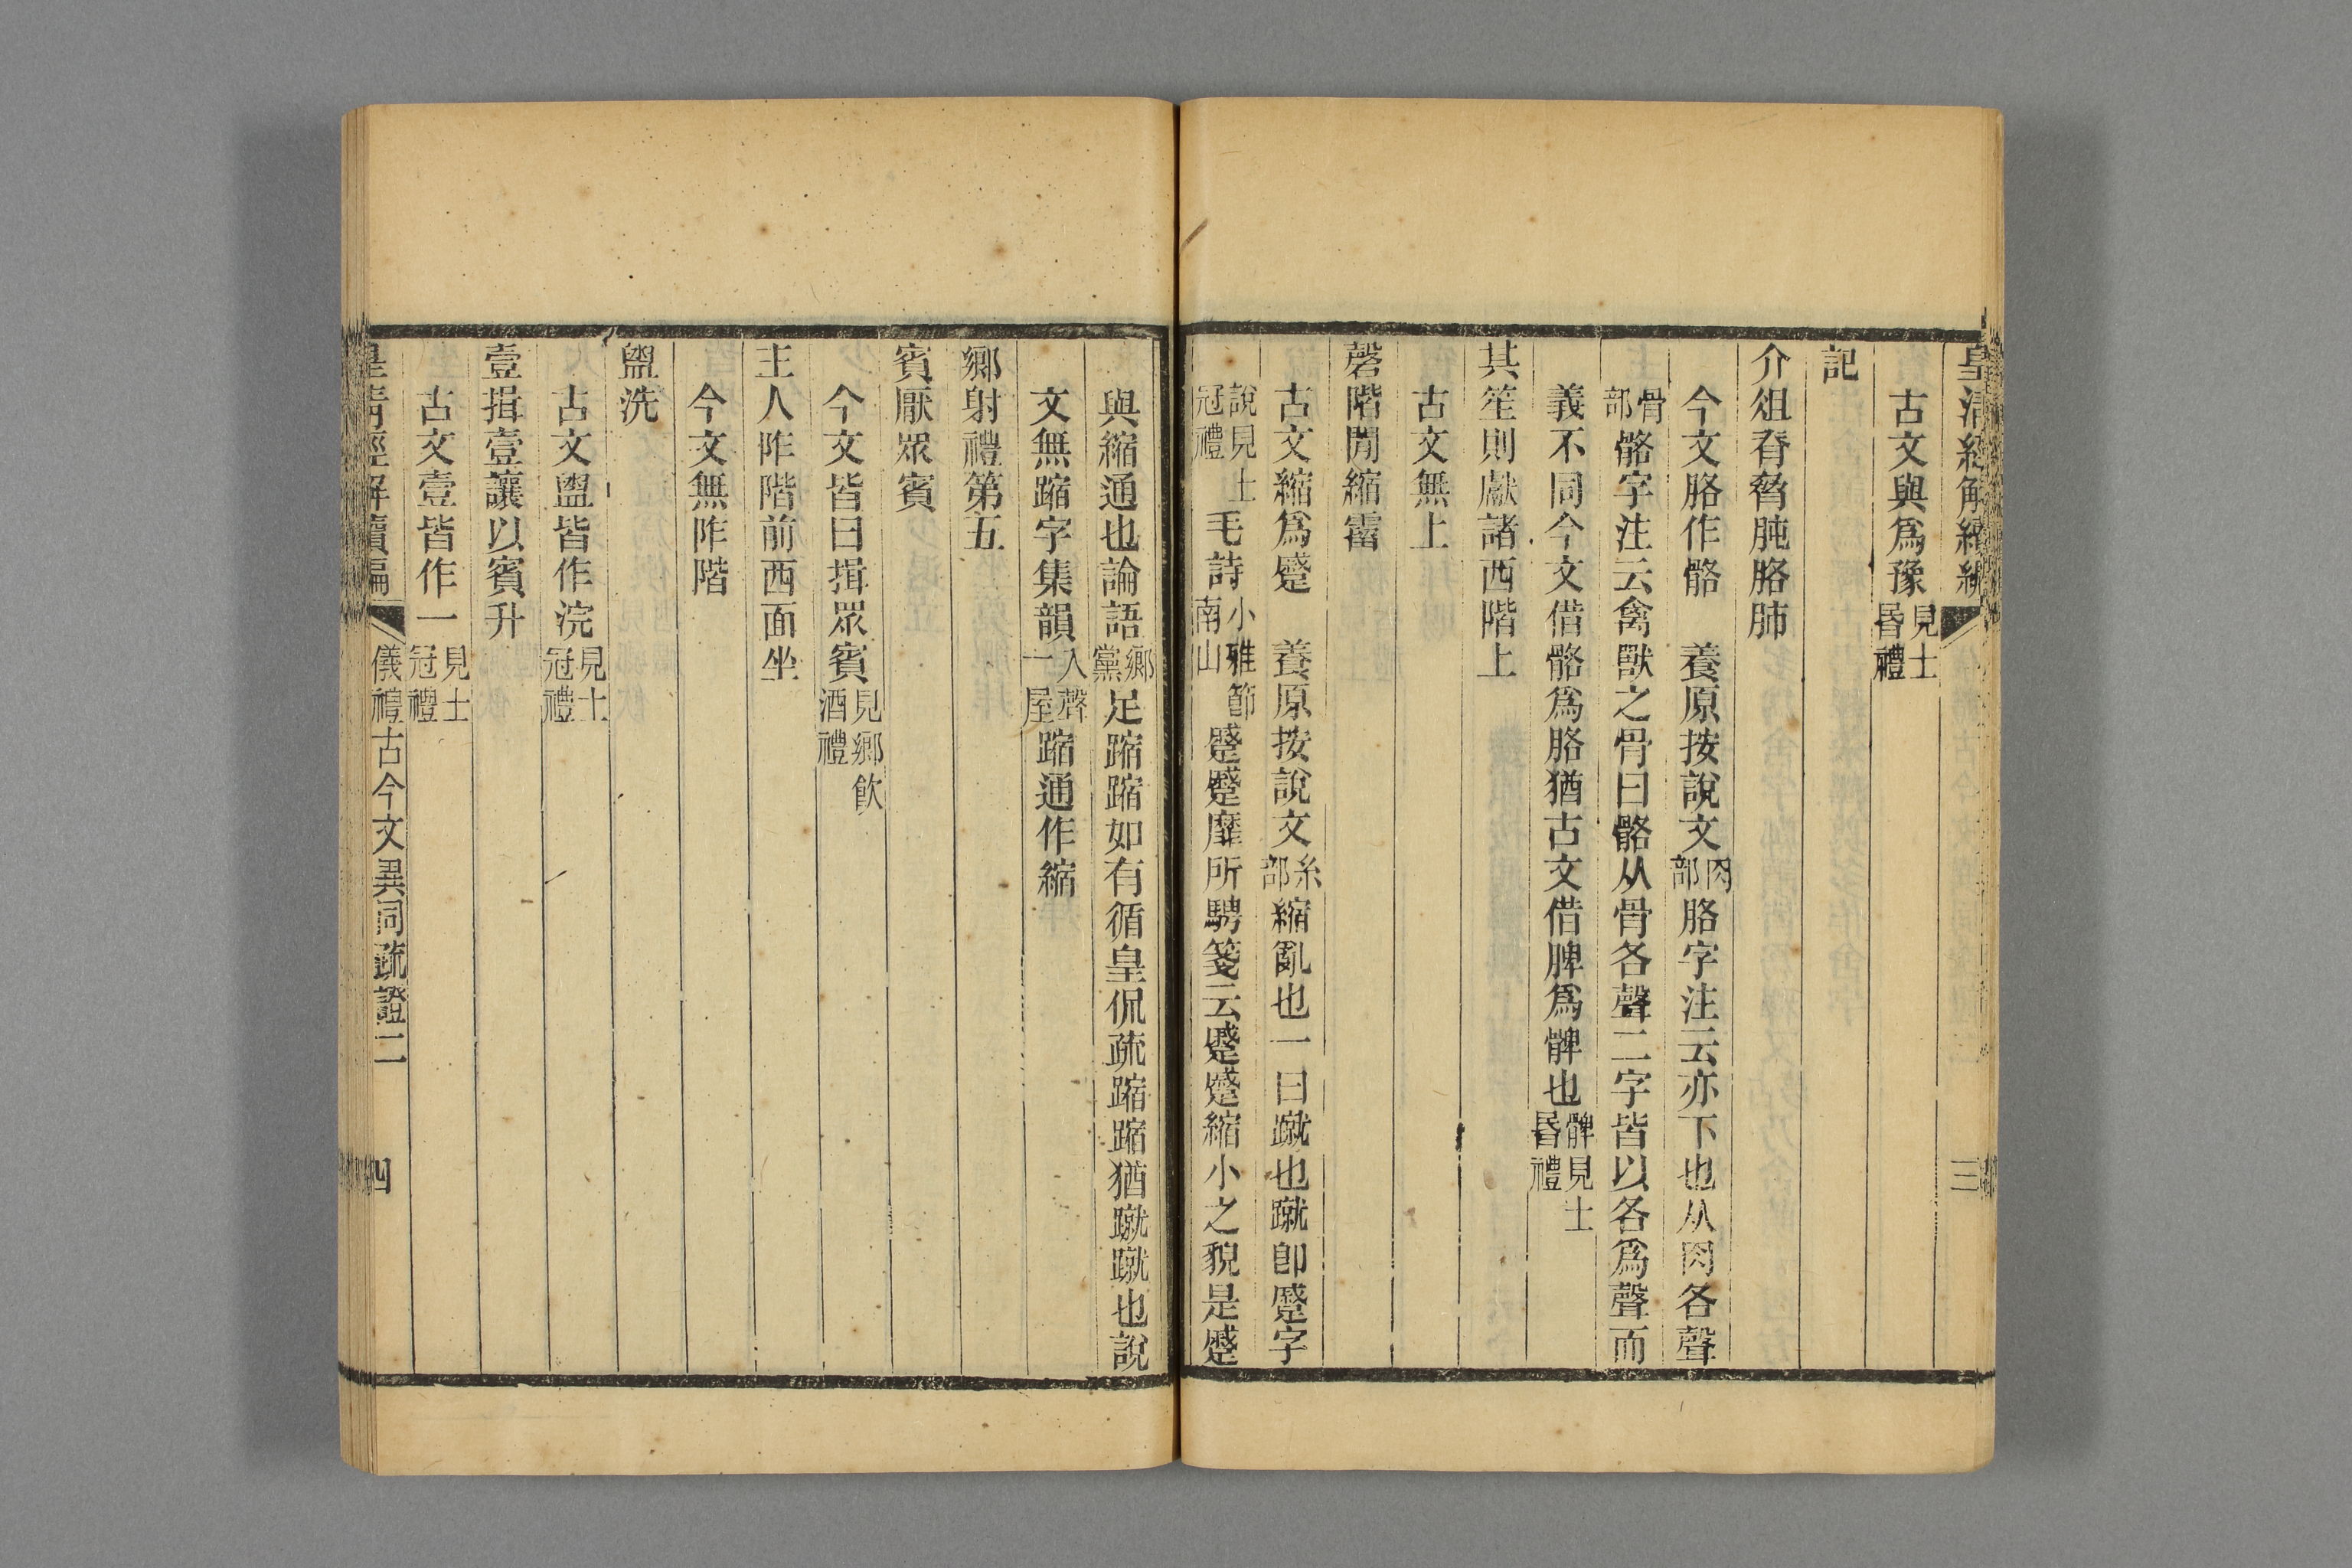 皇清經解續編 三
古文與爲豫見士昬禮
記
介俎脊脅肫胳肺
今文胳作骼 養原按說文肉部胳字注云亦下也从肉各聲
骨部骼字注云禽獸之骨曰骼从骨各聲二字皆以各爲聲而
義不同今文借骼爲胳猶古文借脾爲髀也髀見士昬禮
其笙則獻諸西階上
古文無上
磬階閒縮霤
古文縮爲蹙 養原按說文糸部縮亂也一曰蹴也蹴卽蹙字
說見士冠禮毛詩小雅節南山蹙蹙靡所騁箋云蹙蹙縮小之貌是蹙
與縮通也論語鄉黨足蹜蹜如有循皇侃疏蹜蹜猶蹴蹴也說
文無蹜字集韻入聲一屋蹜通作縮
鄉射禮第五
賓厭眾賓
今文皆曰揖眾賓見鄉飲酒禮
主人阼階前西面坐
今文無阼階
盥洗
古文盥皆作浣見士冠禮
壹揖壹讓以賓升
古文壹皆作一見士冠禮
皇清經解續編 儀禮古今文異同疏證二 四